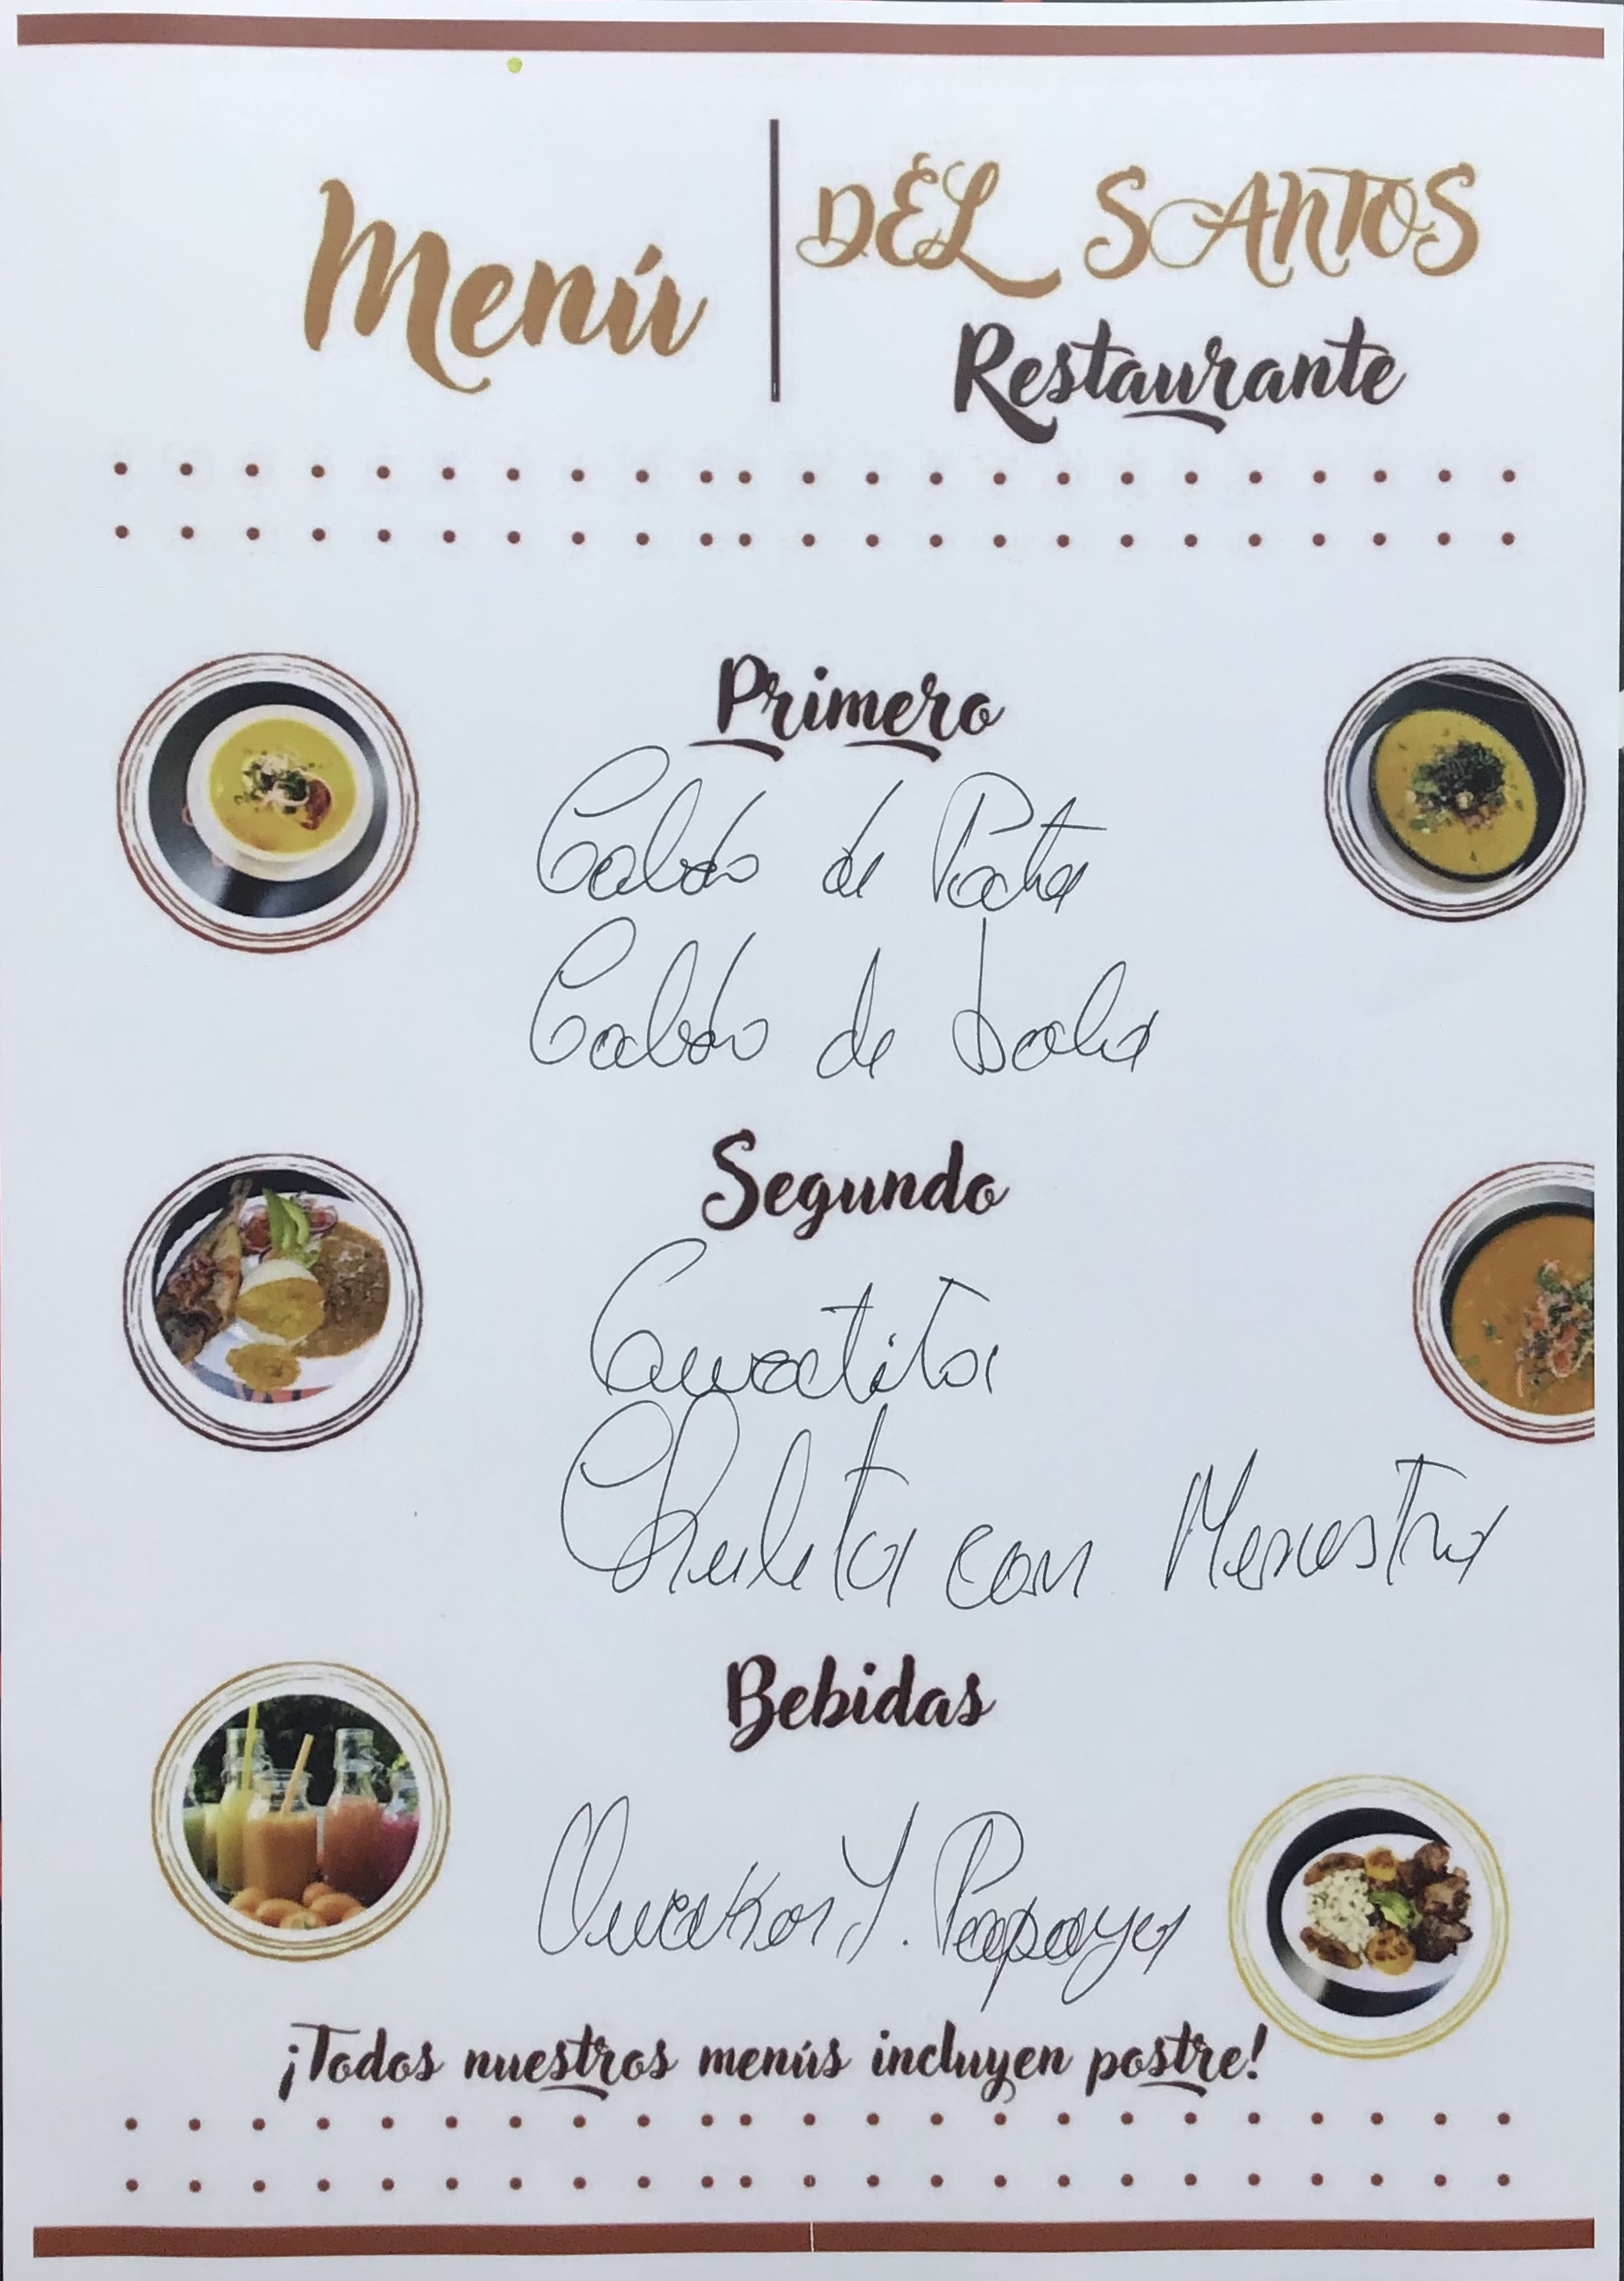 Menú
DEL SANTOS
Restaurante
Primero
Caldo de Pata
Caldo de bola
Segundo
Guatita
Chuleta con Menestra
Bebidas
Quaker Y. Papaya
¡Todos nuestros menús incluyen postre!